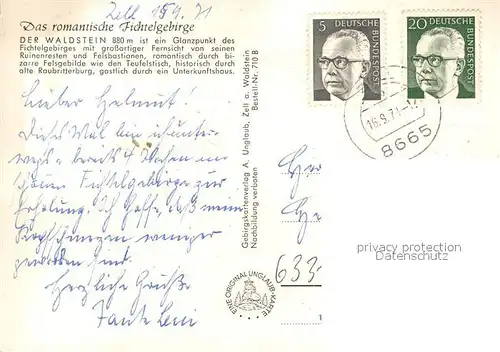 Zell 15.9.71
Das romantische Fichtelgebirge
DER WALDSTEIN 880 m ist ein Glanzpunkt des
Fichtelgebirges mit großartiger Fernsicht von seinen
Ruinenresten und Felsbastionen, romantisch durch bi-
zarre Felsgebilde wie den Teufelstisch, historisch durch
alte Raubritterburg, gastlich durch ein Unterkunftshaus.
Lieber Helmut!
Dieses Mal bin ich unter-
wegs bereits 4 Wochen im
schönen Fichtelgebirge zur
Erholung. Ich hoffe, daß meine
Kopfschmerzen weniger
geworden sind.
Herzliche Grüße
Tante Leni
Gebirgskartenverlag A. Unglaub, Zell a. Waldstein
Nachbildung verboten
Bestell-Nr. 710 B
EINE ORIGINAL UNGLAUB-KARTE
5
DEUTSCHE BUNDESPOST
20
DEUTSCHE BUNDESPOST
16.9.71
8665
633
1
privacy protection
Datenschutz